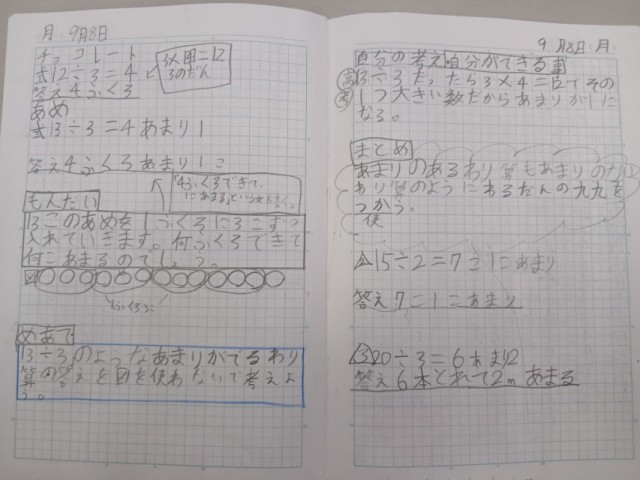 月 9月8日
チョコレート
式12÷3=4
3×4=12
3のだん
答え4ふくろ
あめ
式13÷3=4あまり1
答え4ふくろあまり1こ
もんだい
13このあめを1ふくろに3こずつ
入れていきます。何ふくろできて
何こあまるのでしょう。
図
めあて
13÷3のようなあまりがでるわり
算の答えを図を使わないで考えよ
う。
9月8日 月
自分の考え 自分ができる事
13÷3だったら3×4=12でその
1つ大きい数だからあまりが1に
なる。
まとめ
あまりのあるわり算もあまりのない
わり算のようにわるだんの九九を
つかう。
使
15÷2=7こ1こあまり
答え7こ1こあまり
③20÷3=6あまり2
答え6本とれて2mあまる